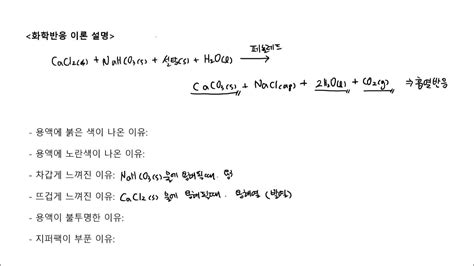 <화학반응 이론 설명>
페놀레드
CaCl₂(s) + NaHCO₃(s) + 설탕(s) + H₂O(l) →
CaCO₃(s) + NaCl(aq) + 2H₂O(l) + CO₂(g) ⇒ 흡열반응
- 용액에 붉은 색이 나온 이유:
- 용액에 노란색이 나온 이유:
- 차갑게 느껴진 이유: NaHCO₃(s) 물에 용해될때.
- 뜨겁게 느껴진 이유: CaCl₂(s) 물에 용해될때. 용해열 (발열)
- 용액이 불투명한 이유:
- 지퍼팩이 부푼 이유: